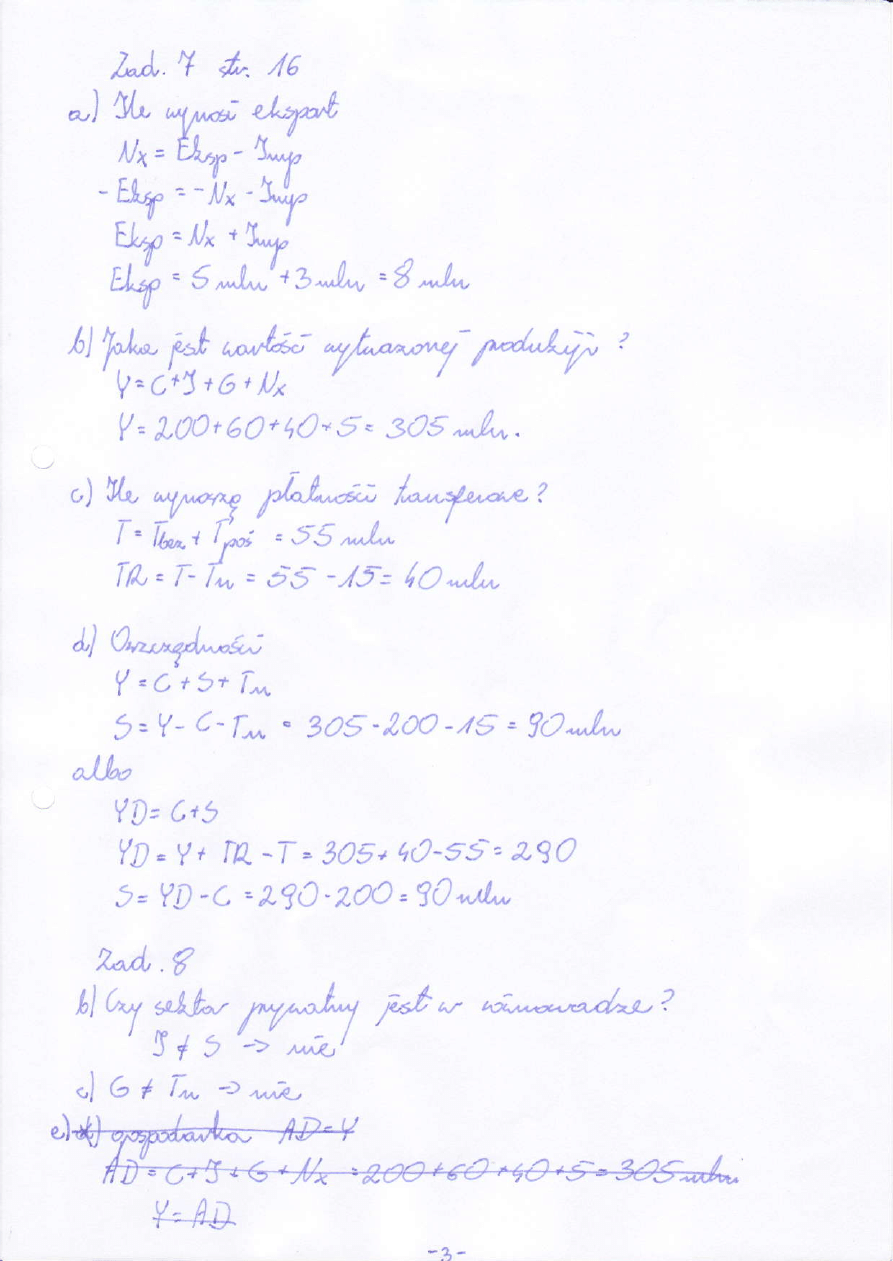 Zad. 7 str. 16
a) Ile wynosi eksport
Nx = Eksp - Imp
- Eksp = - Nx - Imp
Eksp = Nx + Imp
Eksp = 5 mln + 3 mln = 8 mln
b) Jaka jest wartość wytwarzonej produkcji ?
Y = C + I + G + Nx
Y = 200 + 60 + 40 + 5 = 305 mln.
c) Ile wynoszą płatności transferowe ?
T = Tbez + Tpoś = 55 mln
TR = T - Tn = 55 - 15 = 40 mln
d) Oszczędności
Y = C + S + Tn
S = Y - C - Tn = 305 - 200 - 15 = 90 mln
albo
YD = C + S
YD = Y + TR - T = 305 + 40 - 55 = 290
S = YD - C = 290 - 200 = 90 mln
Zad. 8
b) Czy sektor prywatny jest w równowadze ?
I ≠ S -> nie
c) G ≠ Tn -> nie
e) d) gospodarka AD = Y
AD = C + I + G + Nx = 200 + 60 + 40 + 5 = 305 mln
Y = AD
- 3 -